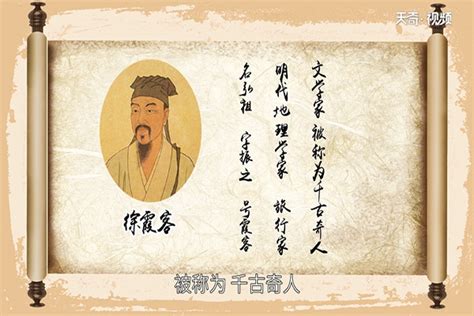 天奇·视频
名弘祖 字振之 号霞客
明代地理学家 旅行家
文学家 被称为千古奇人
徐霞客
被称为 千古奇人